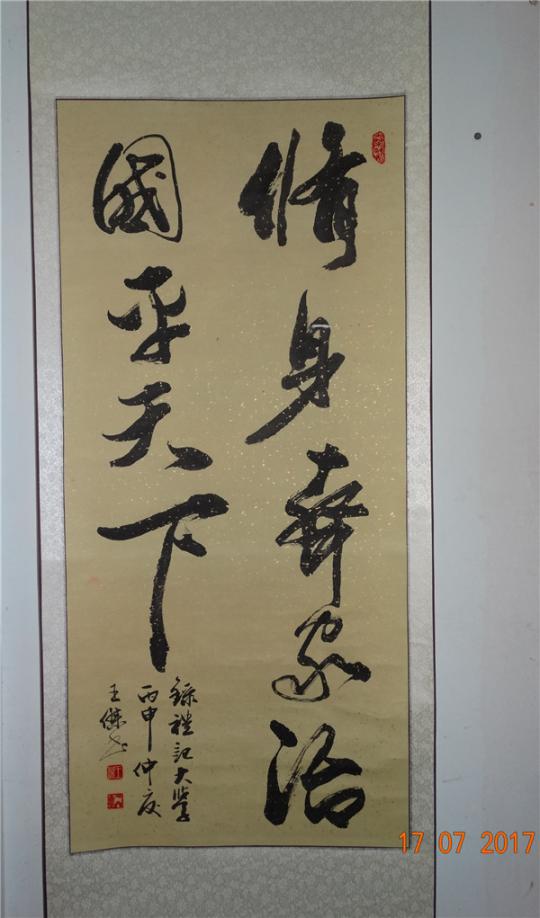 脩身齊家治
國平天下
錄禮記大學
丙申仲夏
王傑书
17 07 2017